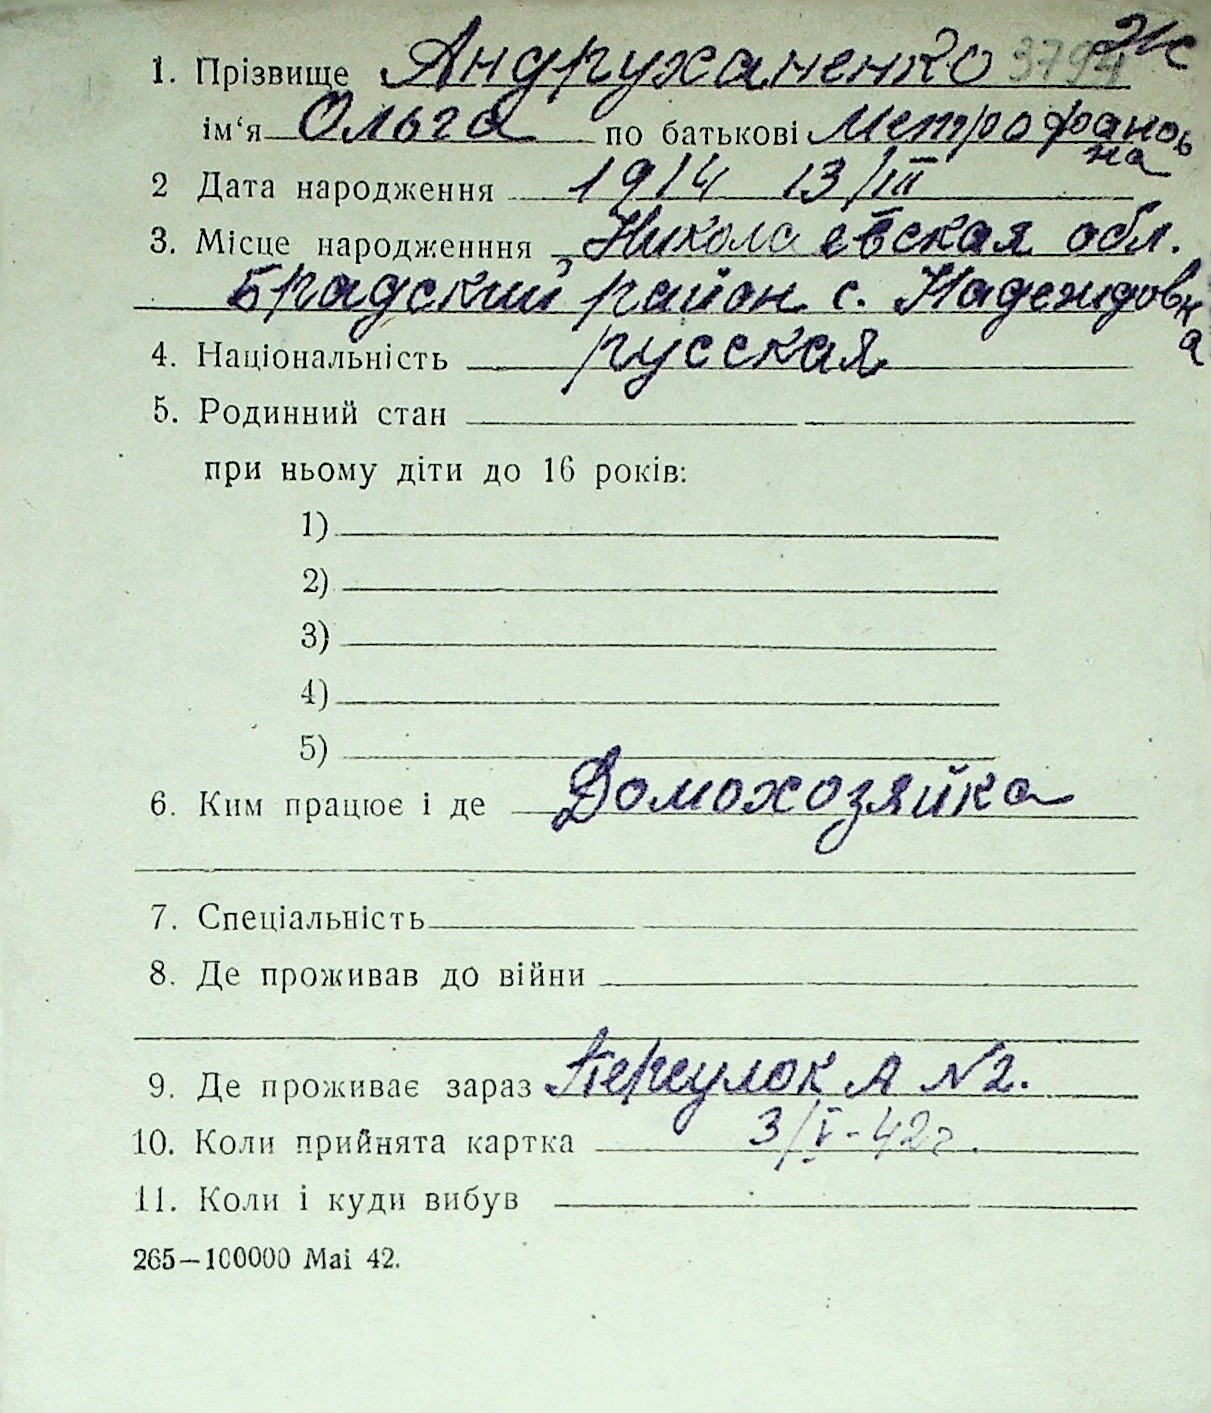 1. Прізвище Андруханенко 3794 Ж
ім‘я Ольга по батькові Метрофановна
2 Дата народження 1914 13/III
3. Місце народженння Николаевская обл.
Брадский район с. Надеждовка
4. Національність русская
5. Родинний стан
при ньому діти до 16 років:
1)
2)
3)
4)
5)
6. Ким працює і де Домохозяйка
7. Спеціальність
8. Де проживав до війни
9. Де проживає зараз Переулок А №2.
10. Коли прийнята картка 3/V-42г.
11. Коли і куди вибув
265—100000 Mai 42.